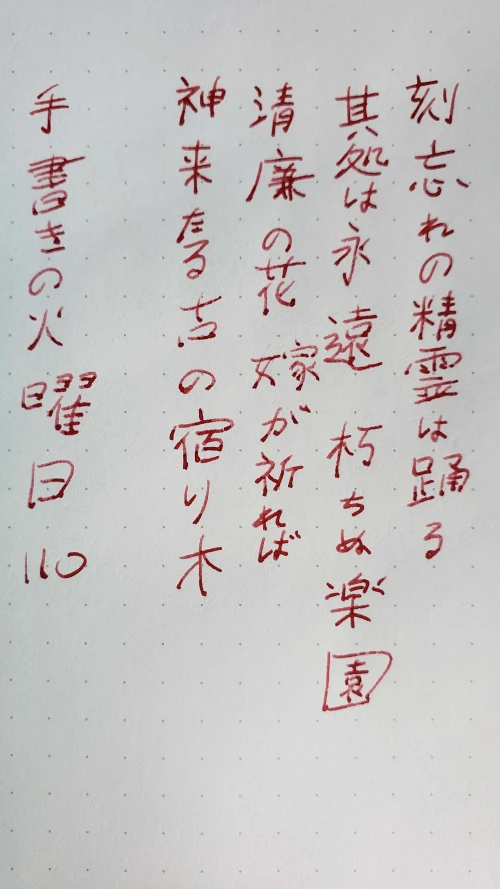 刻忘れの精霊は踊る
其処は永遠 朽ちぬ楽園
清廉の花嫁が祈れば
神来たる吉の宿り木
手書きの火曜日110